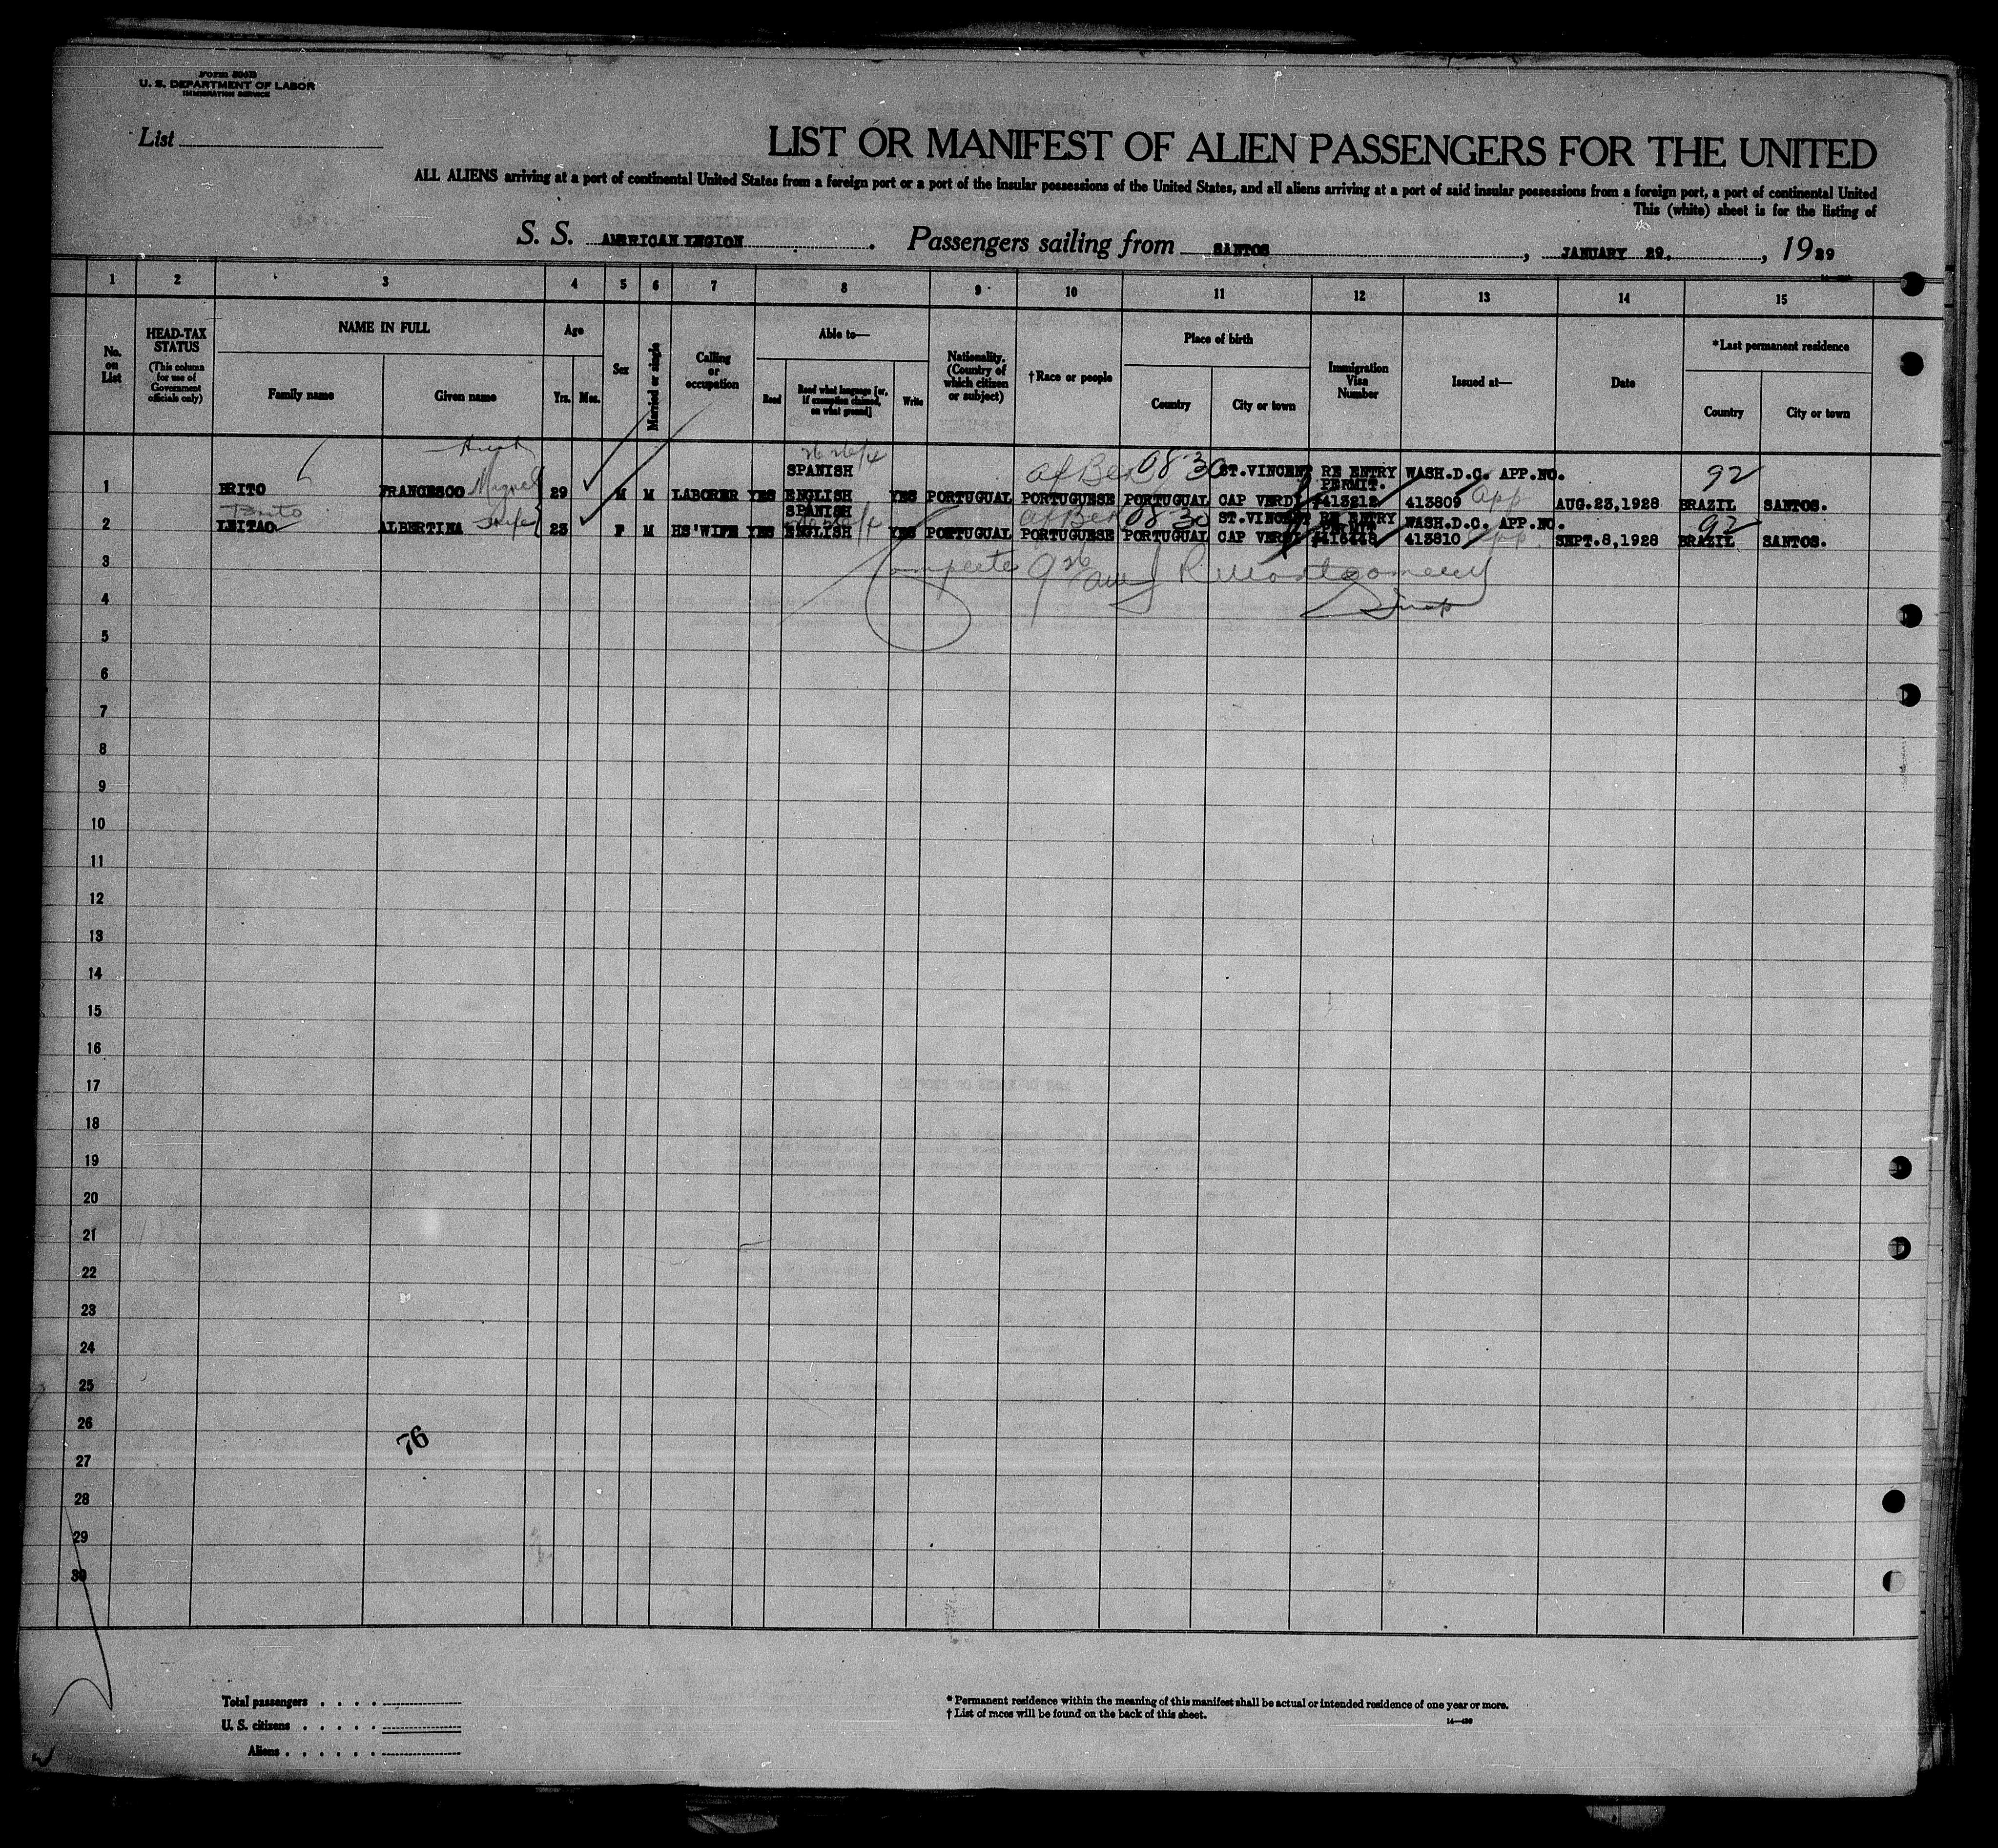 Form 500B
U. S. DEPARTMENT OF LABOR
IMMIGRATION SERVICE
List
LIST OR MANIFEST OF ALIEN PASSENGERS FOR THE UNITED
ALL ALIENS arriving at a port of continental United States from a foreign port or a port of the insular possessions of the United States, and all aliens arriving at a port of said insular possessions from a foreign port, a port of continental United
This (white) sheet is for the listing of
S. S. AMERICAN LEGION. Passengers sailing from SANTOS, JANUARY 29, 1929
1 2 3 4 5 6 7 8 9 10 11 12 13 14 15
No. on List
HEAD-TAX STATUS
(This column for use of Government officials only)
NAME IN FULL
Family name
Given name
Age
Yrs. Mos.
Sex
Married or single
Calling or occupation
Able to—
Read
Read what language [or, if exemption claimed, on what ground]
Write
Nationality. (Country of which citizen or subject)
†Race or people
Place of birth
Country
City or town
Immigration Visa Number
Issued at—
Date
*Last permanent residence
Country
City or town
SPANISH ST.VINCENT RE ENTRY PERMIT. WASH.D.C. APP.NO. 92
1 BRITO FRANCESCO Miguel 29 M M LABORER YES ENGLISH YES PORTUGAL PORTUGUESE PORTUGAL CAP VERDI 413809 app AUG.23,1928 BRAZIL SANTOS.
Brito SPANISH 08 30 ST.VINCENT RE ENTRY PERMIT WASH.D.C. APP.NO. 92
2 LEITAO ALBERTINA wife 23 F M HS'WIFE YES ENGLISH YES PORTUGAL PORTUGUESE PORTUGAL CAP VERDI 413810 app SEPT.8,1928 BRAZIL SANTOS.
3 Complete R Montgomery
4 Insp
5
6
7
8
9
10
11
12
13
14
15
16
17
18
19
20
21
22
23
24
25
26
76
27
28
29
30
Total passengers . . . .
U. S. citizens . . . . .
Aliens . . . . . .
* Permanent residence within the meaning of this manifest shall be actual or intended residence of one year or more.
† List of races will be found on the back of this sheet.